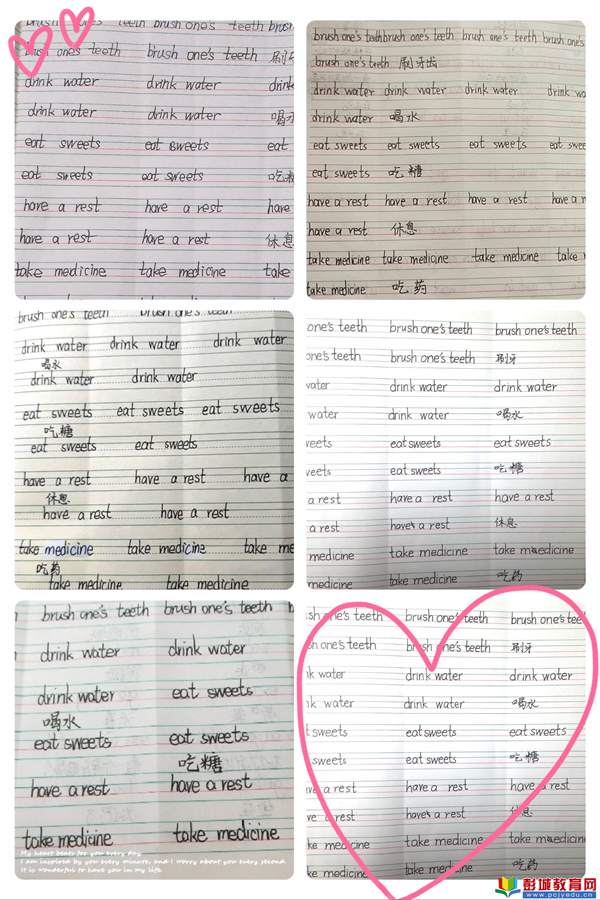 brush one's teeth brush one's teeth brush
brush one's teeth brush one's teeth 刷牙
drink water drink water drink
drink water drink water 喝水
eat sweets eat sweets eat
eat sweets eat sweets 吃糖
have a rest have a rest have
have a rest have a rest 休息
take medicine take medicine take
brush one's teeth brush one's teeth brush one's teeth brush one's
brush one's teeth 刷牙齿
drink water drink water drink water drink wa
drink water 喝水
eat sweets eat sweets eat sweets eat swee
eat sweets 吃糖
have a rest have a rest have a rest have a r
have a rest 休息
take medicine take medicine take medicine take
take medicine 吃药
brush one's teeth brush one's teeth
drink water drink water drink water
喝水
drink water drink water
eat sweets eat sweets eat sweets
吃糖
eat sweets eat sweets
have a rest have a rest have a
休息
have a rest have a rest
take medicine take medicine take me
吃药
take medicine take medicine
one's teeth brush one's teeth brush one's teeth
one's teeth brush one's teeth 刷牙
water drink water drink water
water drink water 喝水
weets eat sweets eat sweets
weets eat sweets 吃糖
a rest have a rest have a rest
a rest have a rest 休息
medicine take medicine take medicine
medicine take medicine 吃药
brush one's teeth brush one's teeth
drink water drink water
drink water eat sweets
喝水
eat sweets eat sweets
吃糖
have a rest have a rest
take medicine take medicine
My heart beats for you every day.
I am inspired by you every minute, and I worry about you every second.
It is wonderful to have you in my life.
sh one's teeth brush one's teeth brush one's tee
sh one's teeth brush one's teeth 刷牙
nk water drink water drink water
nk water drink water 喝水
t sweets eat sweets eat sweets
sweets eat sweets 吃糖
ve a rest have a rest have a rest
ve a rest have a rest 休息
ke medicine take medicine take medicine
ke medicine take medicine 吃药
彭城教育网
www.pcjyedu.cn